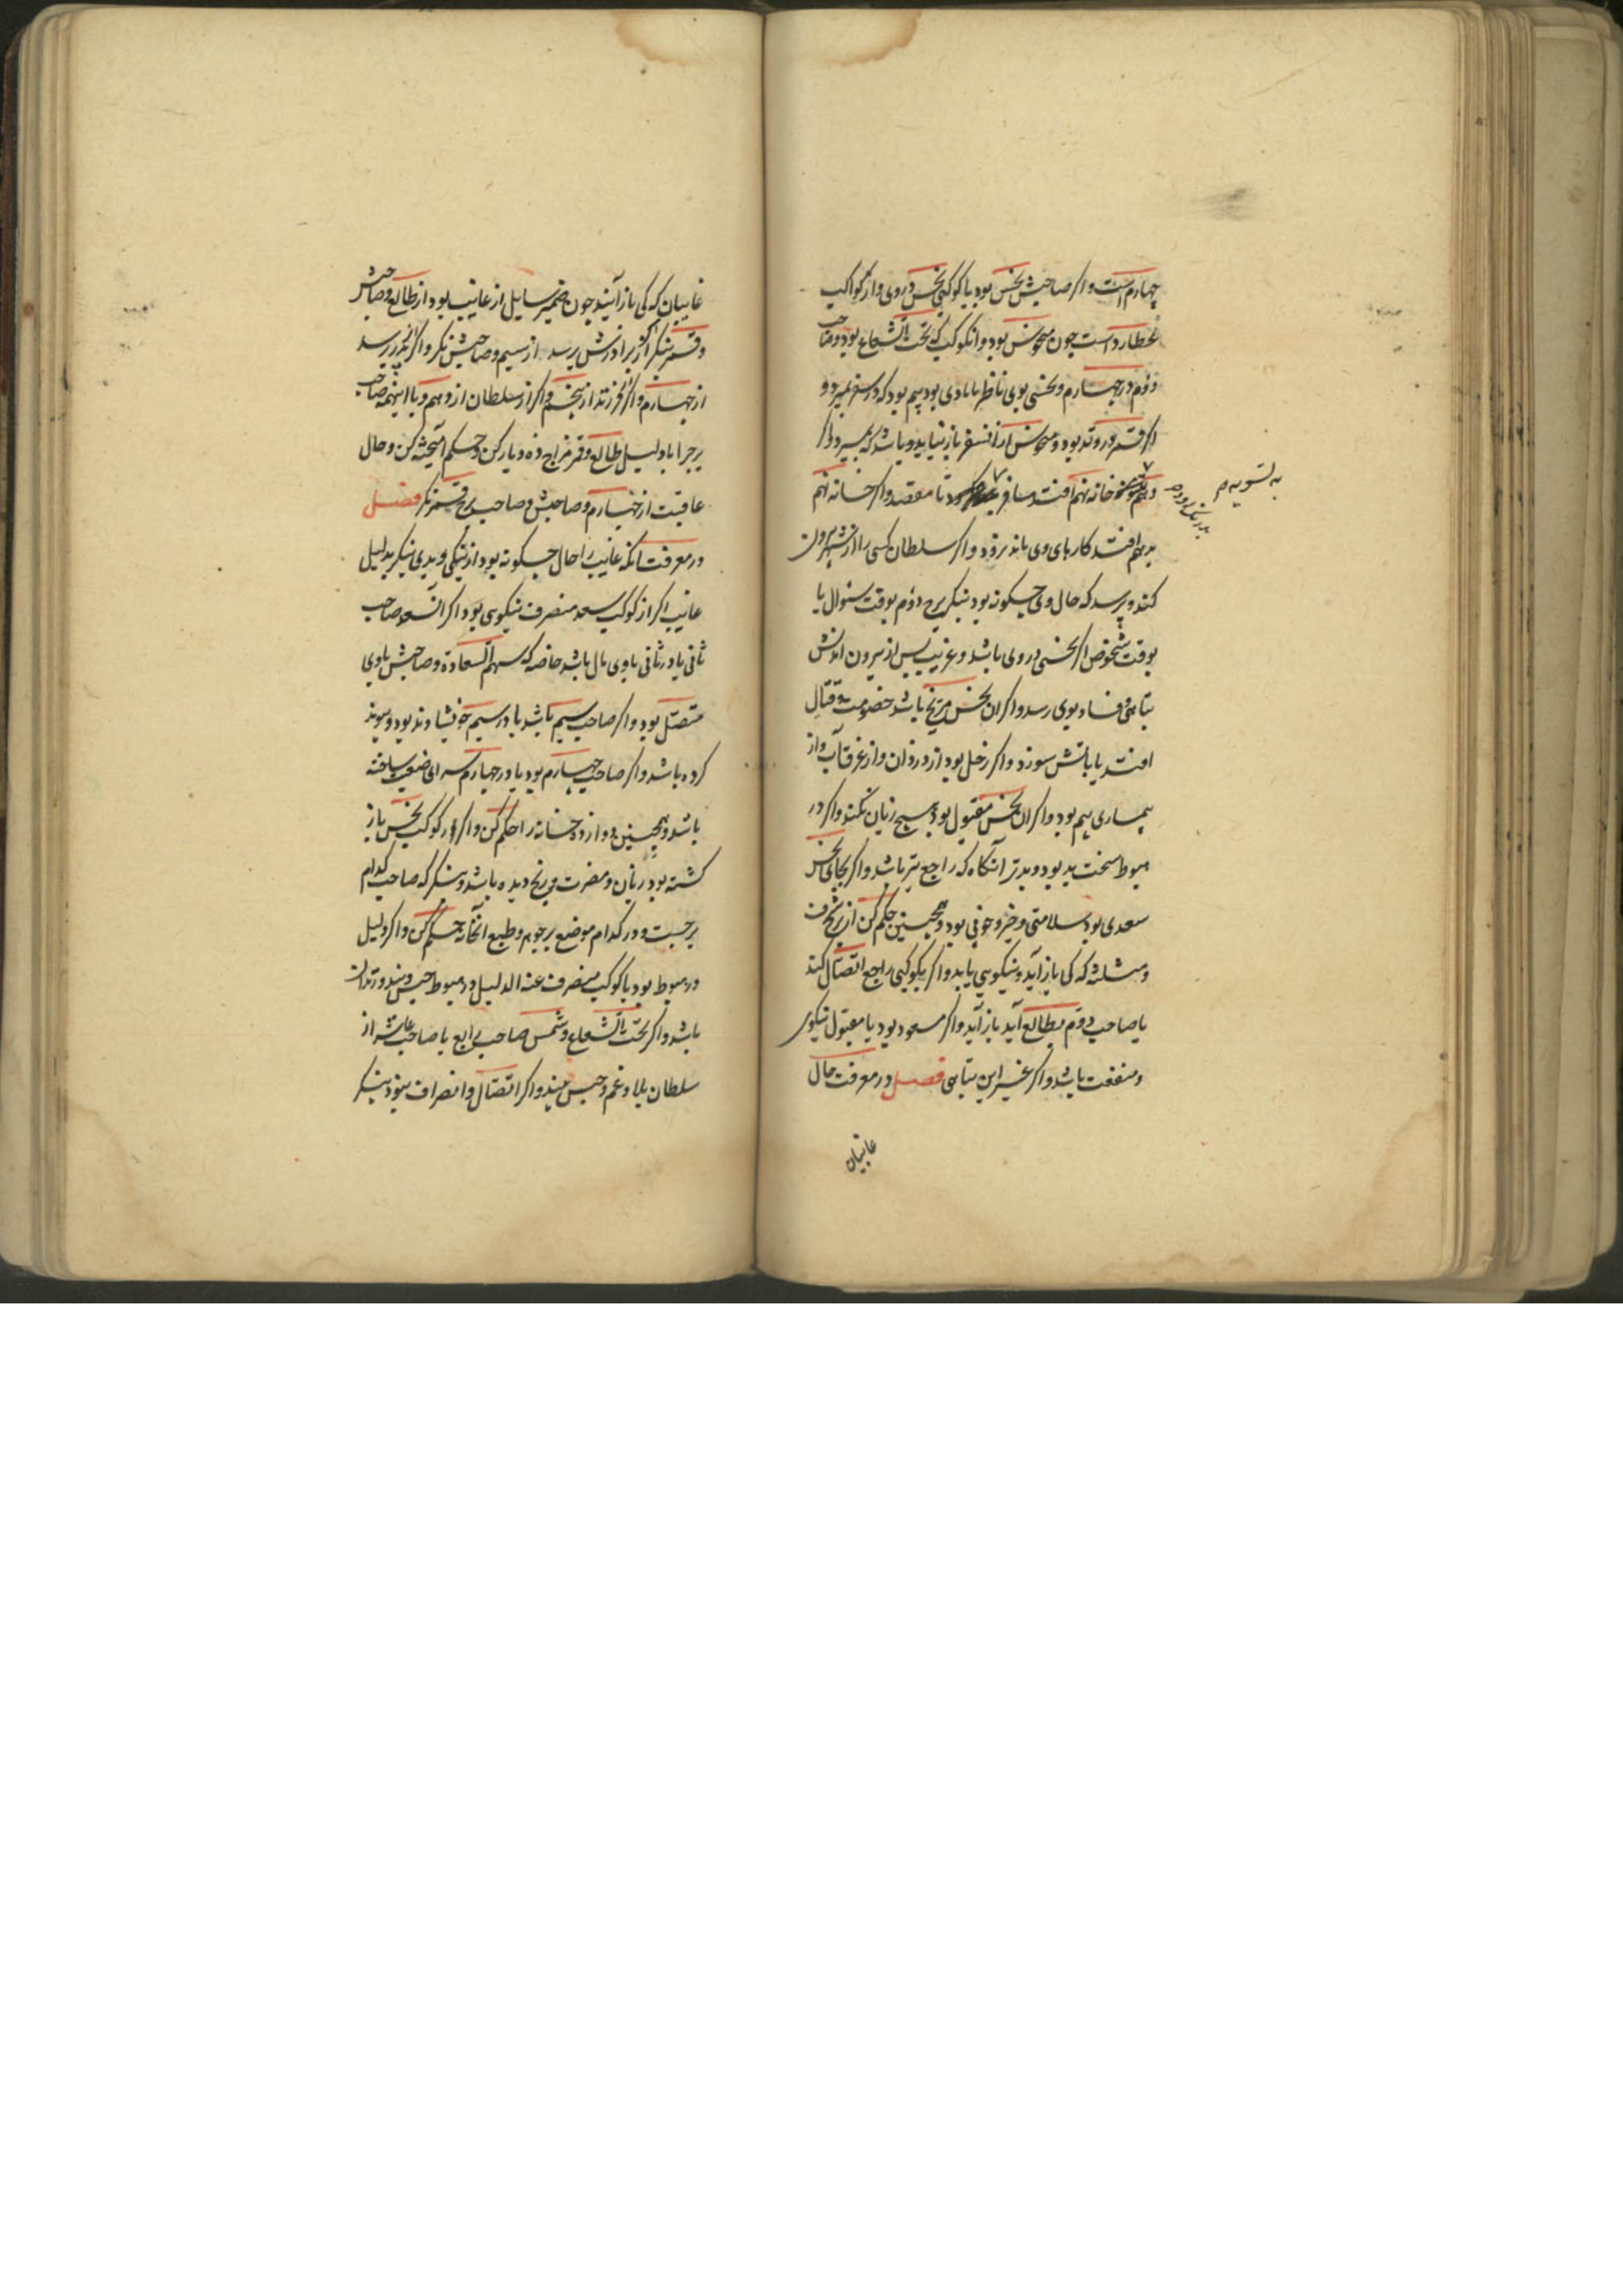 چهارم است و اگر صاحبش نحس بود یا کوکبی نحس در وی و از کواکب
عطارد است چون منحوس بود و آن کوکب که تحت الشعاع بود و صاحب
دوم در چهارم و نحسی بوی ناظر یا با وی بود بیم بود که در سفر بمیرد و
اگر قمر در وتد بود و منحوس از آن سفر باز نیاید و باشد که بمیرد و اگر
خانه نهم افتد مسافر تا مقصد و اگر خانه نهم
بدهم افتد کارهای وی باندر رود و اگر سلطان کسی را از شهر بیرون
کند و پرسد که حال وی چگونه بود بنگر ببرج دوم بوقت سئوال یا
بوقت شخوص اگر نحسی در وی باشد و غریب پس از بیرون آمدنش
تباهی و فساد بوی رسد و اگر آن نحس مریخ باشد خصومت و قتال
افتد یا بآتش سوزد و اگر زحل بود از دزدان و از غرقاب و از
بیماری بیم بود و اگر آن نحس مقبول بود هیچ زیان نکند و اگر در
هبوط سخت بد بود و بدتر آنگاه که راجع نیز باشد و اگر بجای نحس
سعدی بود سلامتی و خیر و خوفی بود و همچنین حکم کن از برج
و مسئله که کی باز آید و نیکویی یابد و اگر بکوکبی راجع اتصال کند
یا صاحب دوم بطالع آید باز آید و اگر مسعود بود یا مقبول نیکوی
و منفعت باشد و اگر غیر این تباهی فصل در معرفت حال
غایبان
به تسویه م
غایبان که کی باز آیند چون ضمیر سایل از غایب بود از طالع و صاحبش
و قمر بنگر اگر از برادرش پرسد از سیم و صاحبش نگر و اگر از پدر پرسد
از چهارم و اگر فرزند از پنجم و اگر از سلطان از دهم و با اینهمه صاحب
برج را با دلیل طالع و قمر مزاج ده و یار کن و حکم آمیخته کن و حال
عاقبت از چهارم و صاحبش و صاحب برج قمر نگر فصل
در معرفت آنکه غایب را حال چگونه بود از نیکی و بدی بنگر بدلیل
غایب اگر از کوکب سعد منصرف نیکوی بود اگر آن سعد صاحب
ثانی یا در ثانی با وی مال باشد خاصه که سهم السعادة و صاحبش با وی
متصل بود و اگر صاحب سیم باشد یا در سیم خویشاوند بود و پیوند
کرده باشد و اگر صاحب چهارم بود یا در چهارم سرای ضیعت ساخته
باشد و همچنین دوازده خانه را حکم کن و اگر از کوکب نحس باز
گشته بود زیان و مضرت و رنج دیده باشد و بنگر که صاحب کدام
برجست و در کدام موضع بر جوهر و طبع آنخانه حکم کن و اگر دلیل
در هبوط بود یا کوکب منصرف عنه الدلیل در هبوط حبس و بند و زندان
باشد و اگر تحت الشعاع و شمس صاحب رابع یا صاحب عاشر از
سلطان بلا و غم و حبس بیند و اگر اتصال و انصراف نبود بنگر